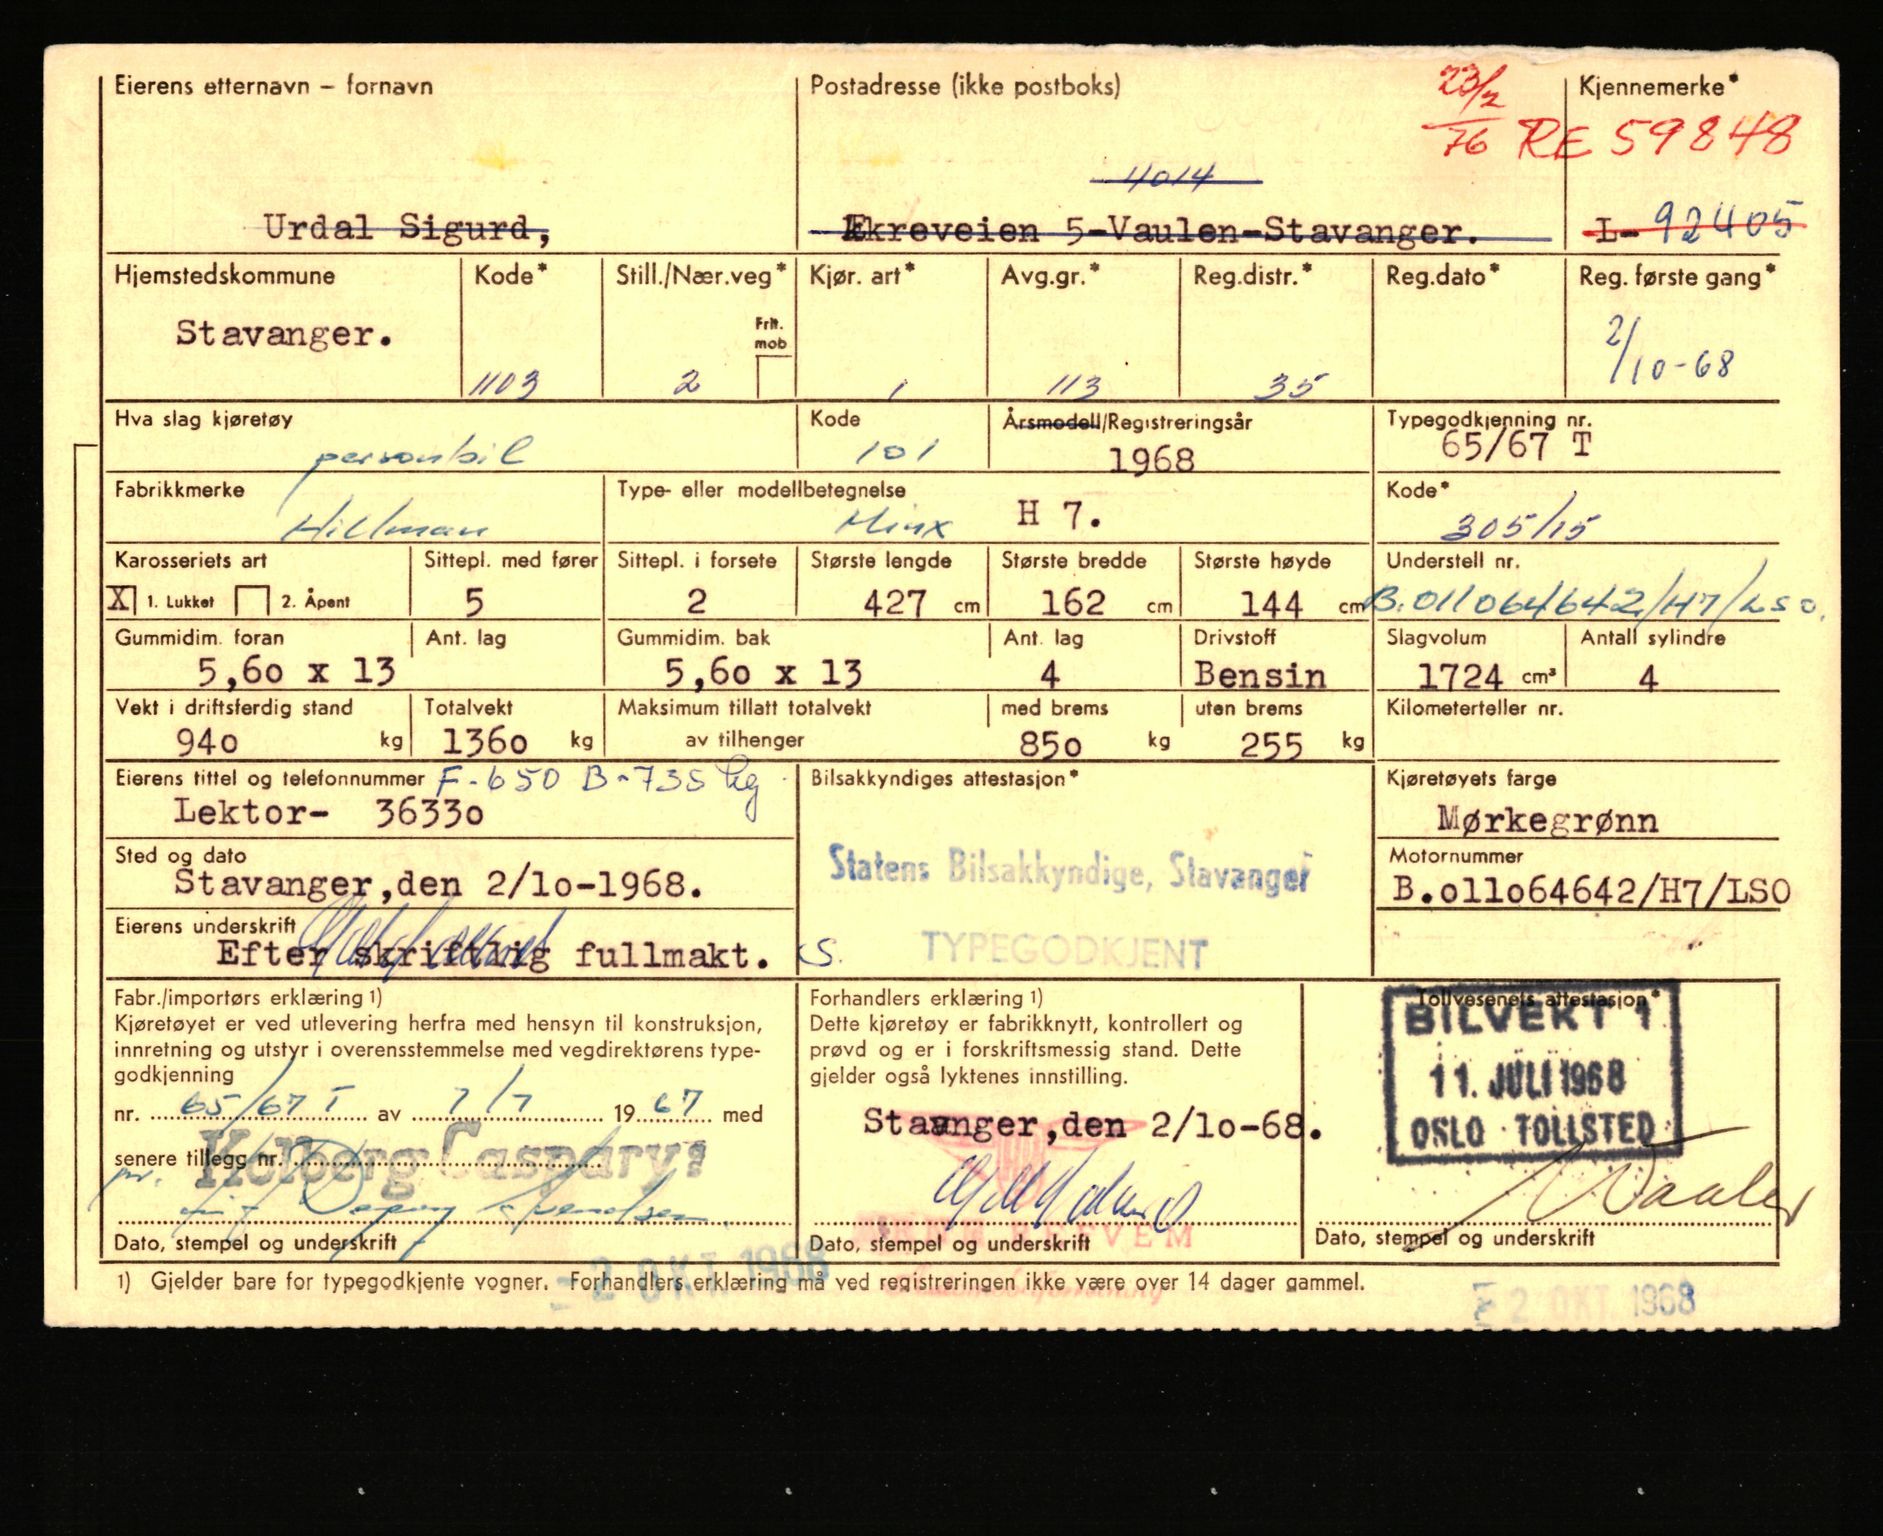 Eierens etternavn – fornavn
Postadresse (ikke postboks)
23/2
76
Kjennemerke*
RE 59848
4014
Urdal Sigurd,
Ekreveien 5-Vaulen-Stavanger.
L- 92405
Hjemstedskommune
Kode*
Still./Nær.veg*
Kjør. art*
Avg.gr.*
Reg.distr.*
Reg.dato*
Reg. første gang*
Stavanger.
Frit. mob
1103
2
1
113
35
2/10-68
Hva slag kjøretøy
Kode
Årsmodell/Registreringsår
Typegodkjenning nr.
personbil
101
1968
65/67 T
Fabrikkmerke
Type- eller modellbetegnelse
Kode*
Hillman
Minx H 7.
305/15
Karosseriets art
Sittepl. med fører
Sittepl. i forsete
Største lengde
Største bredde
Største høyde
Understell nr.
X 1. Lukket 2. Åpent
5
2
427 cm
162 cm
144 cm
B.011064642/H7/LSO.
Gummidim. foran
Ant. lag
Gummidim. bak
Ant. lag
Drivstoff
Slagvolum
Antall sylindre
5,60 x 13
5,60 x 13
4
Bensin
1724 cm³
4
Vekt i driftsferdig stand
Totalvekt
Maksimum tillatt totalvekt
med brems
uten brems
Kilometerteller nr.
940 kg
1360 kg
av tilhenger
850 kg
255 kg
Eierens tittel og telefonnummer F-650 B-735 kg
Bilsakkyndiges attestasjon*
Kjøretøyets farge
Lektor- 36330
Mørkegrønn
Sted og dato
Statens Bilsakkyndige, Stavanger
Motornummer
Stavanger,den 2/10-1968.
B.011064642/H7/LSO
Eierens underskrift
Efter skriftlig fullmakt.
S.
TYPEGODKJENT
Fabr./importørs erklæring 1)
Kjøretøyet er ved utlevering herfra med hensyn til konstruksjon,
innretning og utstyr i overensstemmelse med vegdirektørens type-
godkjenning
nr. 65/67 T av 7/7 1967 med
senere tillegg nr.
Kolberg Caspary
pr.
Dato, stempel og underskrift
Forhandlers erklæring 1)
Dette kjøretøy er fabrikknytt, kontrollert og
prøvd og er i forskriftsmessig stand. Dette
gjelder også lyktenes innstilling.
Stavanger,den 2/10-68.
Dato, stempel og underskrift
Tollvesenets attestasjon*
BILVEKT 1
11. JULI 1968
OSLO TOLLSTED
Dato, stempel og underskrift
1) Gjelder bare for typegodkjente vogner. Forhandlers erklæring må ved registreringen ikke være over 14 dager gammel.
- 2 OKT. 1968
2 OKT. 1968